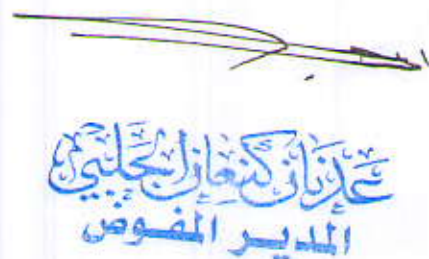 عدنان كنعان الجلبي
المدير المفوض